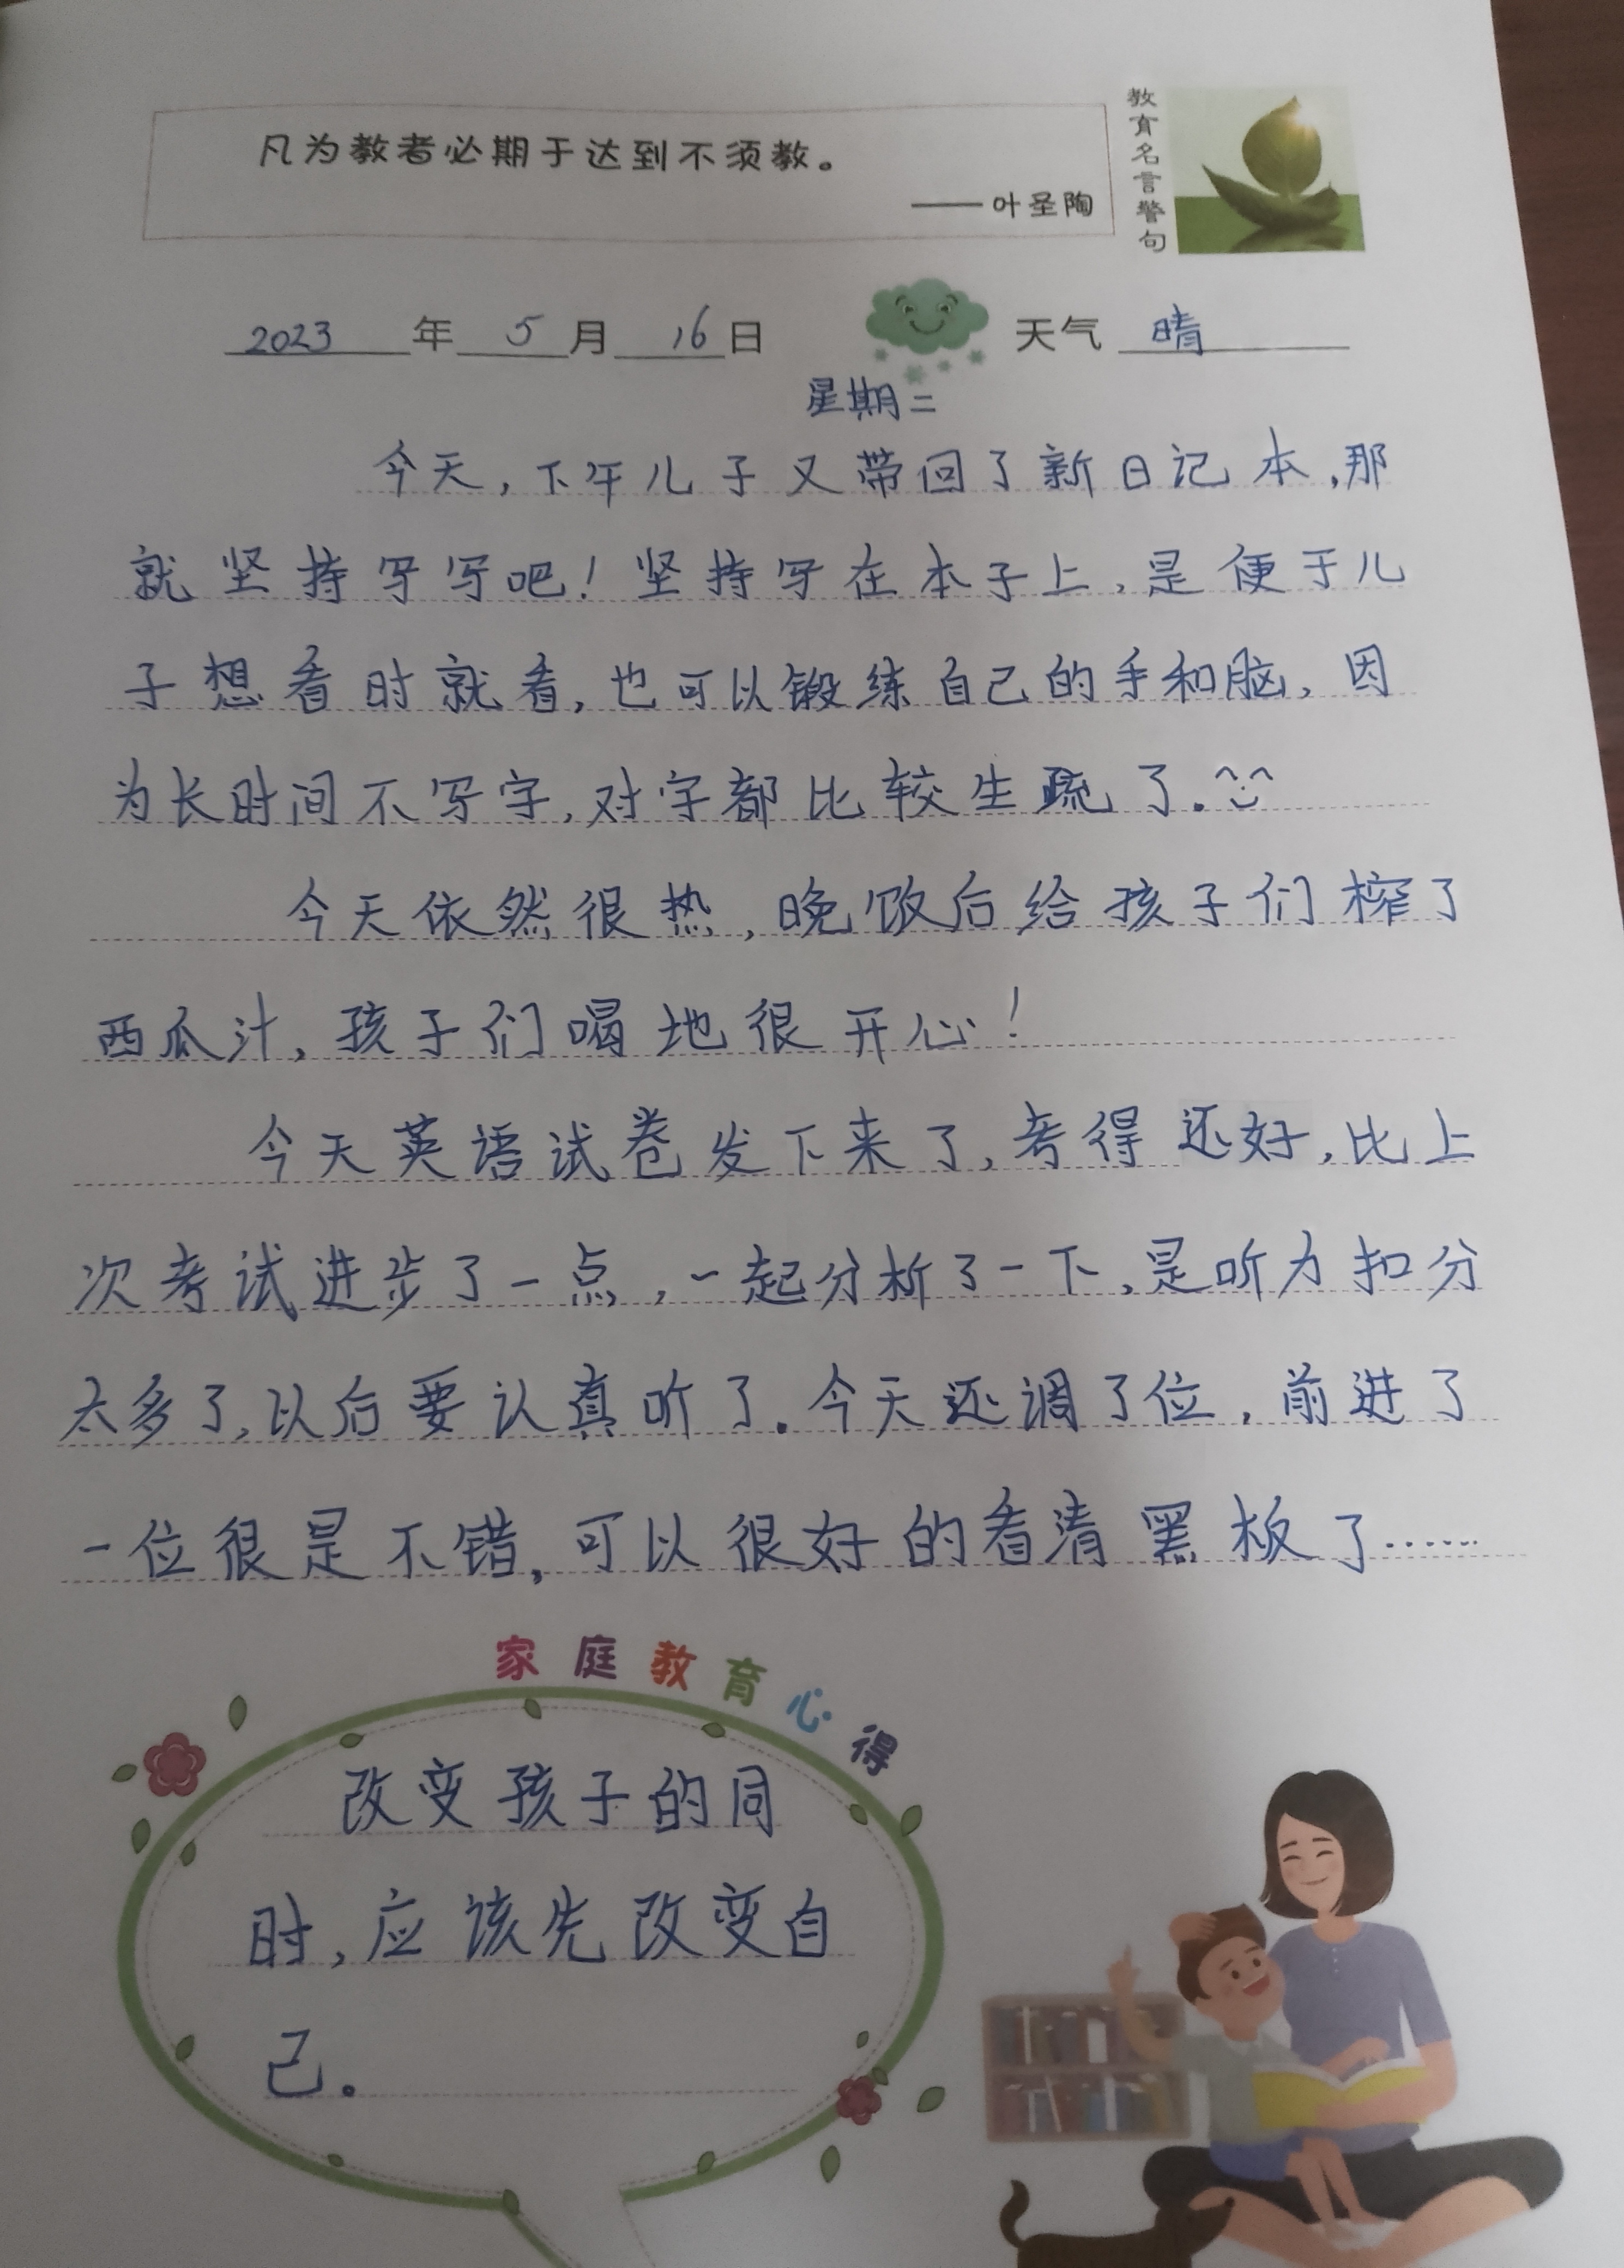 凡为教者必期于达到不须教。
——叶圣陶
教育名言警句
2023 年 5 月 16 日 天气 晴
星期二
今天,下午儿子又带回了新日记本,那
就坚持写写吧!坚持写在本子上,是便于儿
子想看时就看,也可以锻练自己的手和脑,因
为长时间不写字,对字都比较生疏了.^^
今天依然很热,晚饭后给孩子们榨了
西瓜汁,孩子们喝地很开心!
今天英语试卷发下来了,考得还好,比上
次考试进步了一点,一起分析了一下,是听力扣分
太多了,以后要认真听了.今天还调了位,前进了
一位很是不错,可以很好的看清黑板了……
家庭教育心得
改变孩子的同
时,应该先改变自
己。